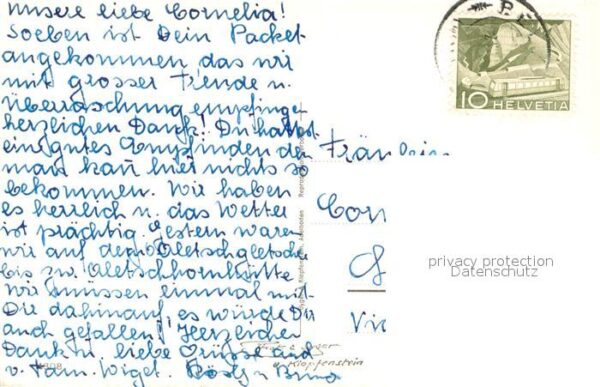 unsere liebe Cornelia!
Soeben ist Dein Packet
angekommen das wir
mit grosser Freude u.
Überraschung empfingen
herzlichen Dank! Du hattest
ein gutes Empfinden den
man kan hier nichts so
bekommen. Wir haben
es herrlich u. das Wetter
ist prächtig. Gestern waren
wir auf dem Aletschgletscher
bis zur Aletschhornhütte
wir müssen einmal mit
Dir dahinauf es würde Dir
auch gefallen! Herzlichen
Dank u. liebe Grüsse and
v. Fam. Wiget. Rösly u Bruno
Klopfenstein
Fräu
Cor
G
Vic
10 HELVETIA
privacy protection
Datenschutz